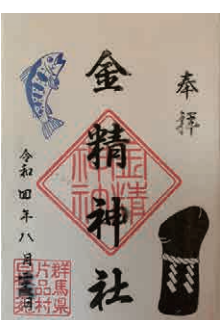 奉拝
金精神社
金精
神社
令和四年八月
群馬県
片品村